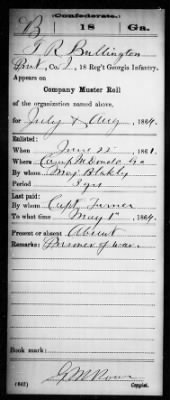 (Confederate.)
B 18 Ga.
T R Bullington
Pvt, Co. 2, 18 Reg't Georgia Infantry.
Appears on
Company Muster Roll
of the organization named above,
for July & Aug, 1864.
Enlisted:
When June 22, 1861.
Where Camp McDonald Ga
By whom Maj. Blakly
Period 3 yrs
Last paid:
By whom Capt. Turner
To what time May 1st, 1864.
Present or absent Absent
Remarks: Prisoner of war.
Book mark:
G M Rowe
(642) Copyist.